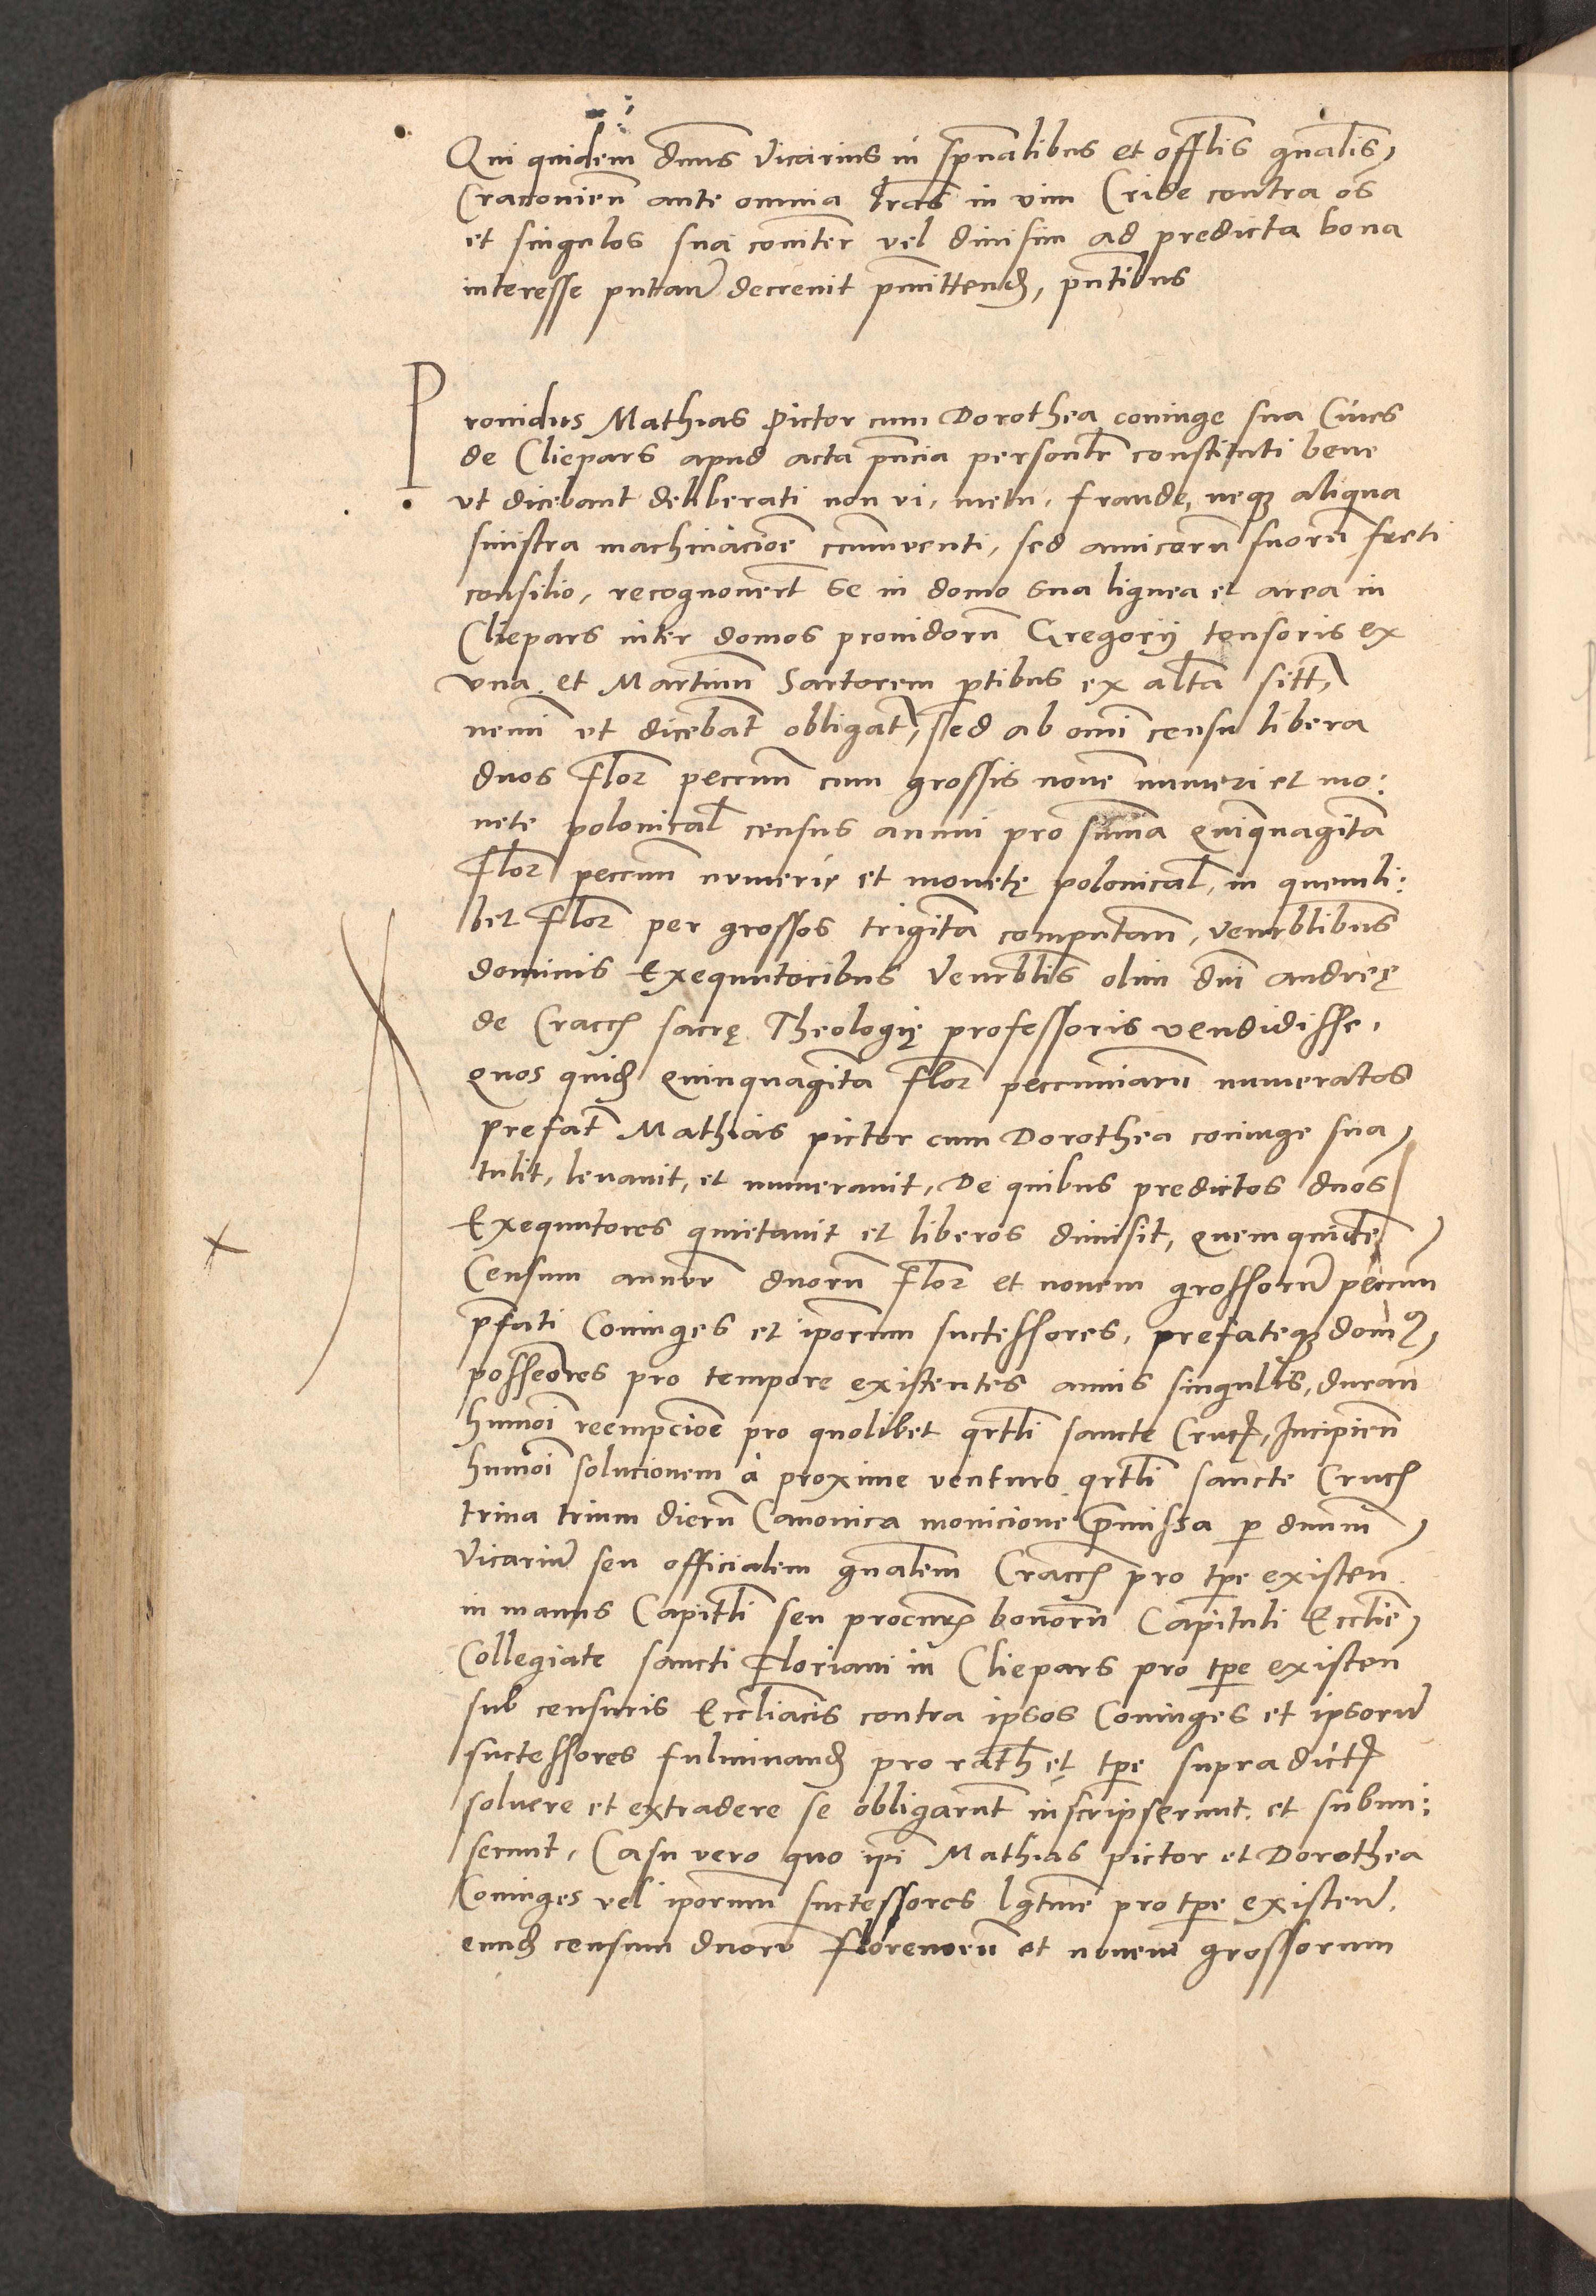 Qui quidem dnus Vicarius in spualibus et offlis gnalis
Cracovien ante omnia lras in vim Cride contra os
et singulos sua coniter vel divisim ad predicta bona
interesse putan decrevit pmittend, pntibus
Providus Mathias Pictor cum Dorothea coniuge sua Cives
de Cliepars apud acta pncia personlr constituti bene
ut dicebant deliberati non vi, metu, fraude, neqz aliqua
sinistra machinacioe ccumventi, sed amicorum suorum freti
consilio, recognovert se in domo sua lignea et area in
Cliepars inter domos providorum Gregorij tonsoris ex
una et Martinum Sartorem ptibus ex altra sitt
nemi ut dicebat obligat, sed ab omi censu libera
duos flor peccun cum grossis nove numeri et mo:
nete polonical census annui pro suma quinquaginta
flor peccun numeri et monetę polonical, in quemli:
bet flor per grossos triginta computan, venrblibus
dominis Exequutoribus Venrblis olim dni andreę
de Cracc sacrę Theologię professoris vendidisse,
quos quid quinquaginta flor peccuniarum numeratos
prefat Mathias pictor cum Dorothea coniuge sua
tulit, levavit, et numeravit, De quibus predictos duos
Exequutores quietavit et liberos dimisit, quem quide
Censum annuu duorum flor et novem grossorum peccun
pfati Coniuges et iporum suctessores, prefateqz dom9
possessores pro tempore existentes annis singulis, duran
humoi reempcioe pro quolibet qrtli sancte Cruc, Incipien
humoi solucionem a proxime venturo qrtli sancte Cruc
trina trium dierum Canonica monicione pmissa p dnum
Vicarium seu officialem gnalem Cracc pro tpe existen
in manus Capitli seu procur bonorum Capituli Ecclie
Collegiate sancti Floriani in Cliepars pro tpe existen
sub censuris Eccliacis contra ipsos Coniuges et ipsorum
suctessores fulminand pro rath et tpe supradict
solvere et extradere se obligarunt inscripserunt et submi:
serunt, Casu vero quo ipi Mathias pictor et Dorothea
Coniuges vel iporum suctessores lgtme pro tpe existen,
eund censum duorum florenorum et novem grossorum